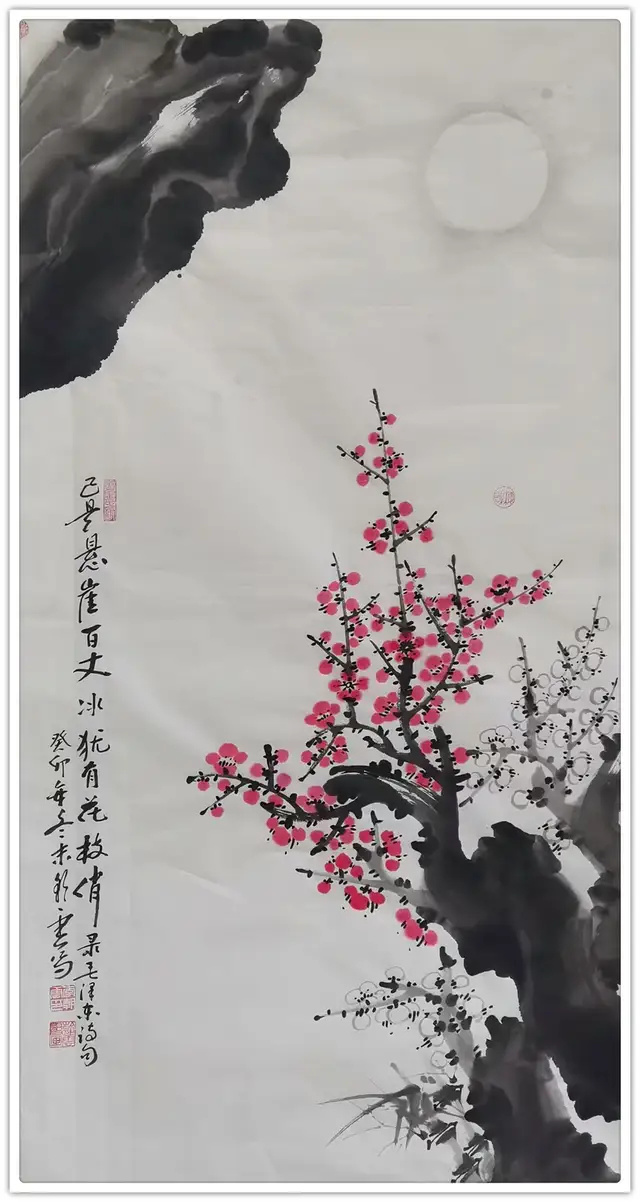 已是悬崖百丈冰犹有花枝俏录毛泽东诗句
癸卯年冬末